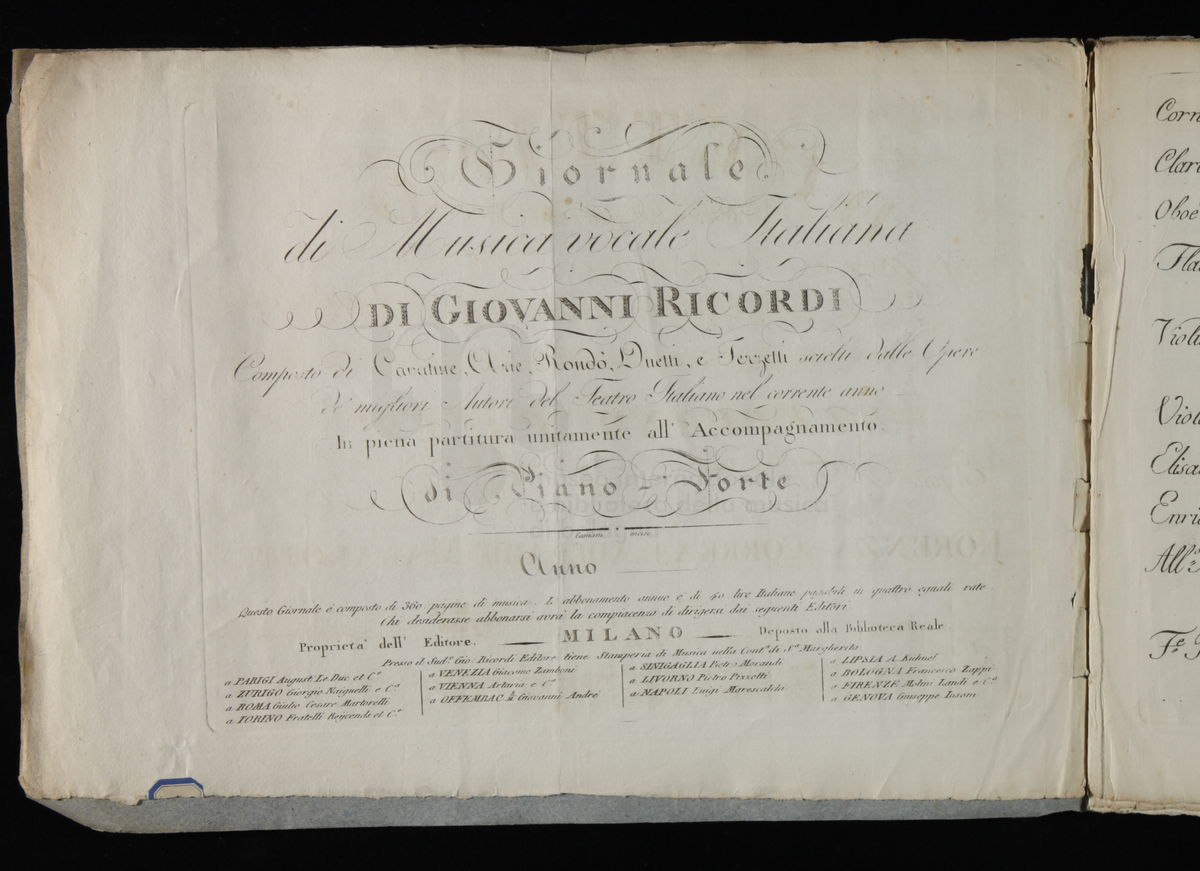 Giornale
di Musica vocale Italiana
DI GIOVANNI RICORDI
Composto di Cavatine, Arie, Rondò, Duetti, e Terzetti scielti dalle Opere
de' migliori Autori del Teatro Italiano nel corrente anno
In piena partitura unitamente all' Accompagnamento.
di Piano - Forte
incise
Anno
Questo Giornale è composto di 360 pagine di musica. L' abbonamento annuo è di 40 lire Italiane pagabili in quattro eguali rate
Chi desiderasse abbonarsi avrà la compiacenza di dirigersi dai seguenti Editori
Proprieta' dell' Editore. MILANO Deposto alla Biblioteca Reale.
Presso il Sudo. Gio. Ricordi Editore tiene Stamperia di Musica nella Conta. di Sa. Margherita
a PARIGI August Le Duc et Co.
a ZURIGO Giorgio Naiguelli e Co.
a ROMA Giulio Cesare Martorelli
a TORINO Fratelli Reycends et Co.
a VENEZIA Giacomo Zamboni
a VIENNA Artaria e Co.
a OFFEMBAC Giovanni André
a SINIGAGLIA Pietro Morandi
a LIVORNO Pietro Pizzotti
a NAPOLI Luigi Marescalchi
a LIPSIA A. Kuhnel
a BOLOGNA Francesco Zappi
a FIRENZE Molini Landi e Co.
a GENOVA Giuseppe
Corn
Clar
Oboe
Fla
Viol
Viol
Elisa
Enri
All.